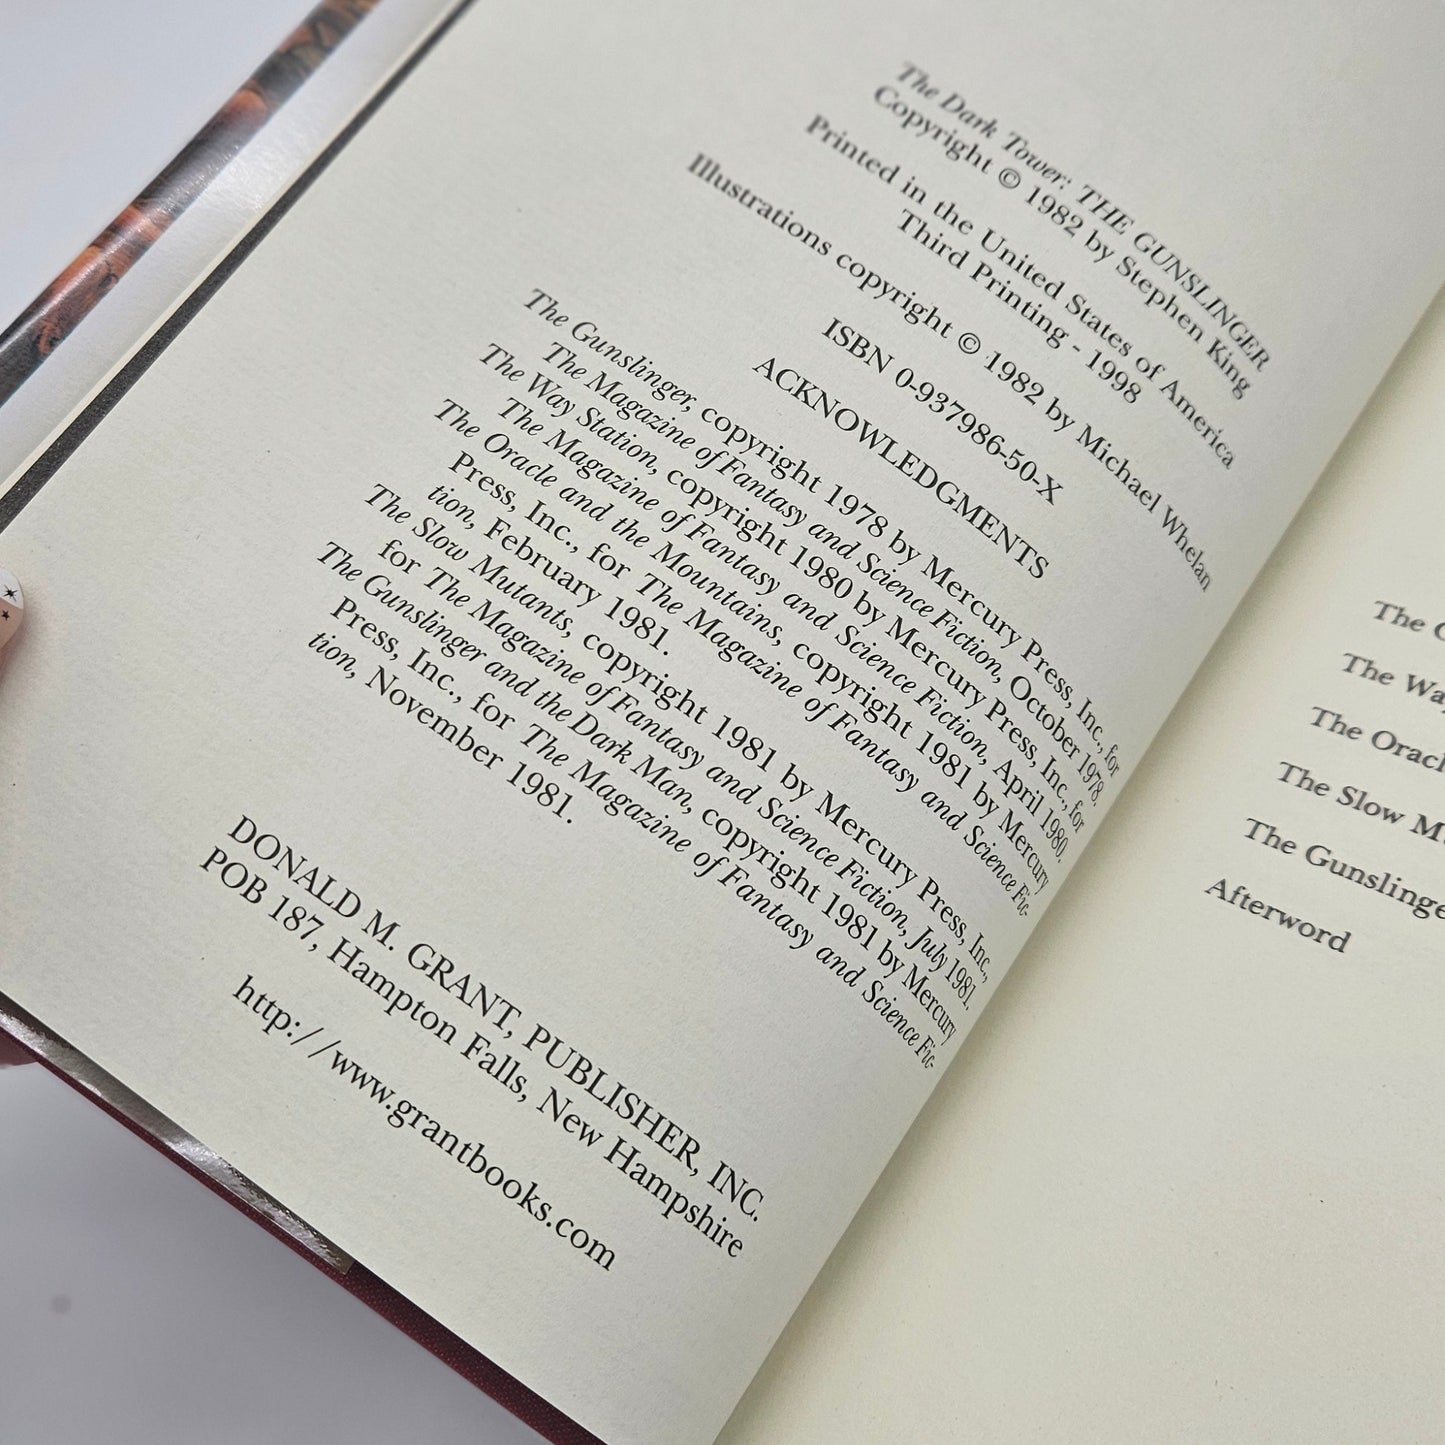 The Dark Tower: THE GUNSLINGER
Copyright © 1982 by Stephen King
Printed in the United States of America
Third Printing - 1998
Illustrations copyright © 1982 by Michael Whelan
ISBN 0-937986-50-X
ACKNOWLEDGMENTS
The Gunslinger, copyright 1978 by Mercury Press, Inc., for
The Magazine of Fantasy and Science Fiction, October 1978.
The Way Station, copyright 1980 by Mercury Press, Inc., for
The Magazine of Fantasy and Science Fiction, April 1980.
The Oracle and the Mountains, copyright 1981 by Mercury
Press, Inc., for The Magazine of Fantasy and Science Fic-
tion, February 1981.
The Slow Mutants, copyright 1981 by Mercury Press, Inc.,
for The Magazine of Fantasy and Science Fiction, July 1981.
The Gunslinger and the Dark Man, copyright 1981 by Mercury
Press, Inc., for The Magazine of Fantasy and Science Fic-
tion, November 1981.
DONALD M. GRANT, PUBLISHER, INC.
POB 187, Hampton Falls, New Hampshire
http://www.grantbooks.com
The
The
The
The Slow
The
Afterword